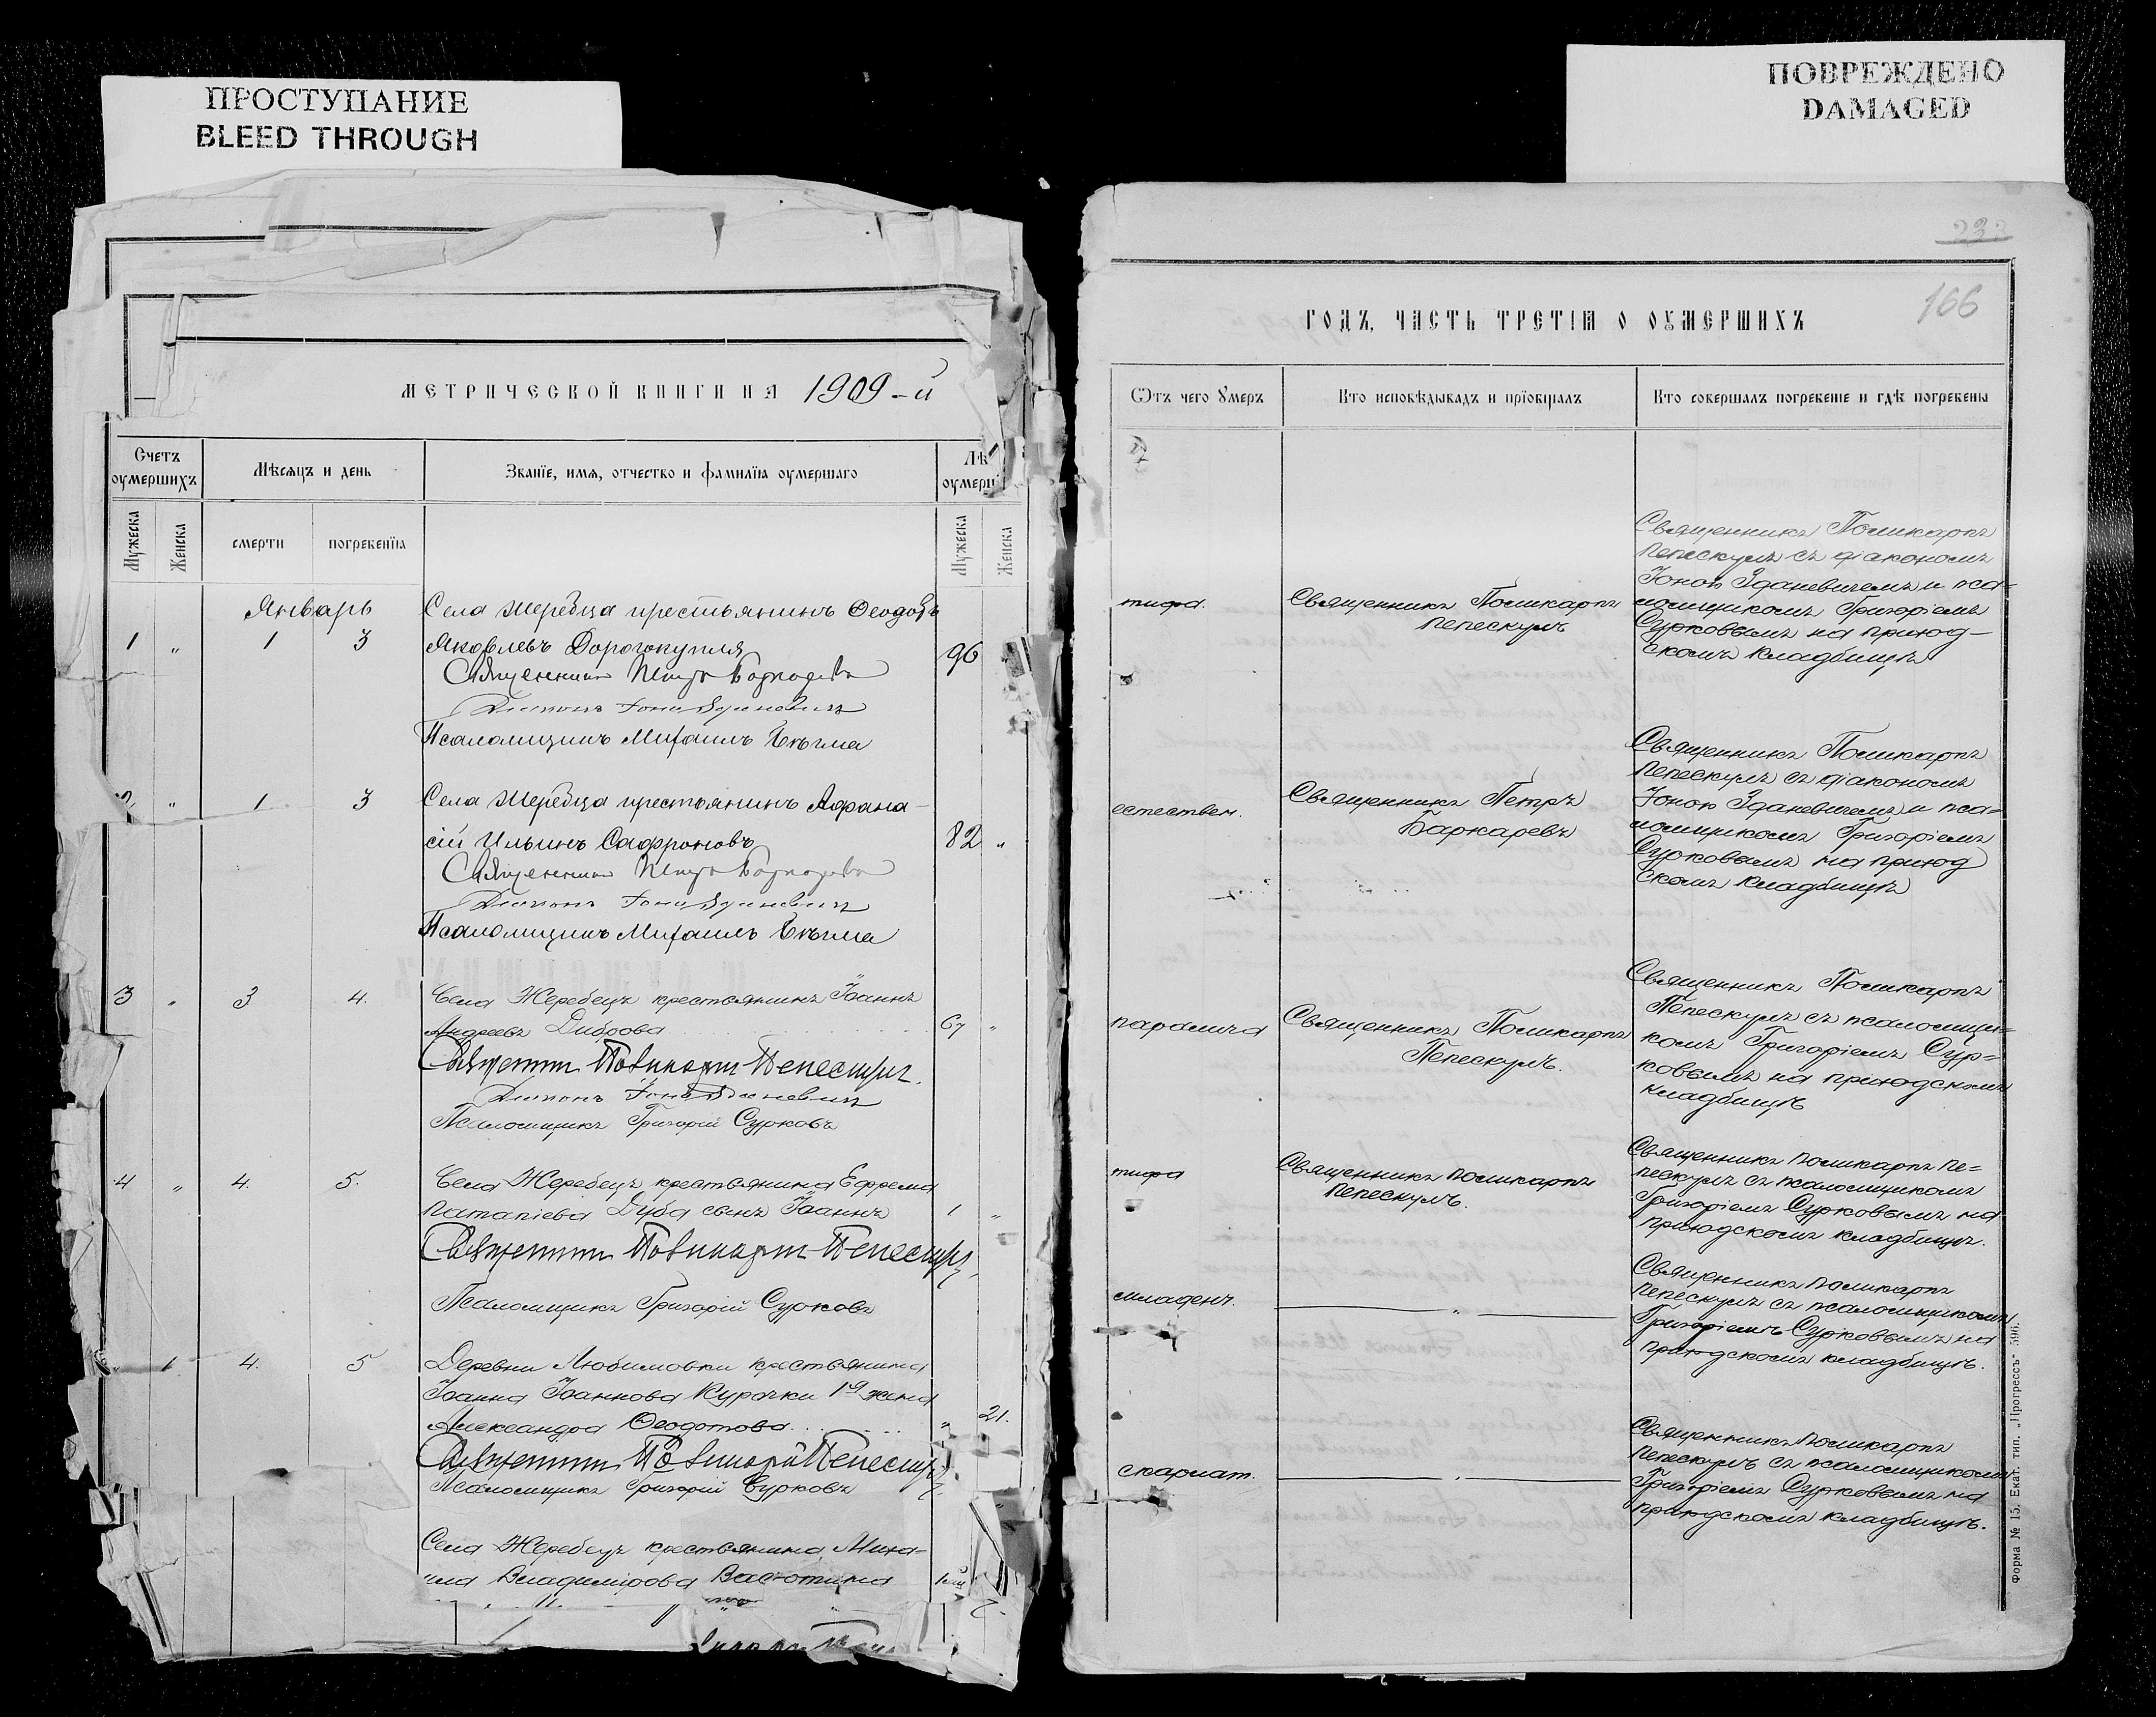 ПРОСТУПАНИЕ
BLEED THROUGH
ПОВРЕЖДЕНО
DAMAGED
МЕТРИЧЕСКОЙ КНИГИ НА 1909-й
Счетъ оумершихъ
Мѣсяцъ и день
Званїе, имя, отчество и фамилїя оумершаго
Лѣ
оумерш
Мужеска
Женска
смерти
погребенїя
Мужеска
Женска
Январь
Села Жеребца крестьянинъ Ѳеодоръ
1 " 1 3 Яковлевъ Дорогокупля 96
Священникъ Петръ Баркаревъ
Діаконъ Іона Зданевичъ
Псаломщикъ Михаилъ
2 " 1 3 Села Жеребца крестьянинъ Афана-
сій Ильинъ Сафроновъ 82 "
Священникъ Петръ Баркаревъ
Діаконъ Іона Зданевичъ
Псаломщикъ Михаилъ
3 " 3 4. Села Жеребецъ крестьянинъ Іоаннъ
Андреевъ Диброва 67 "
Священникъ Поликарпъ Пепескулъ.
Діаконъ Іона Зданевичъ
Псаломщикъ Григорій Сурковъ
4 " 4. 5. Села Жеребецъ крестьянина Ефрема
Патапіева Дуба сынъ Іоаннъ 1 "
Священникъ Поликарпъ Пепескулъ
Псаломщикъ Григорій Сурковъ
" 1 4. 5 Деревни Любимовки крестьянина
Іоанна Іоаннова Курочки 1я жена
Александра Ѳеодотова " 21.
Священникъ Поликарпъ Пепескулъ
Псаломщикъ Григорій Сурковъ
Села Жеребецъ крестьянина Миха-
ила Владимірова Васютина
232
166
ГОДЪ, ЧАСТЬ ТРЕТІЯ О ОУМЕРШИХЪ
Ѿтъ чего оумеръ
Кто исповѣдывалъ и прїобщалъ
Кто совершалъ погребенїе и гдѣ погребены
тифа.
Священникъ Поликарпъ
Пепескулъ
Священникъ Поликарпъ
Пепескулъ съ діакономъ
Іоною Зданевичемъ и пса-
ломщикомъ Григоріемъ
Сурковымъ на приход-
скомъ кладбищѣ
естествен.
Священникъ Петръ
Баркаревъ
Священникъ Поликарпъ
Пепескулъ съ діакономъ
Іоною Зданевичемъ и пса-
ломщикомъ Григоріемъ
Сурковымъ на приход
скомъ кладбищѣ
паралича
Священникъ Поликарпъ
Пепескулъ.
Священникъ Поликарпъ
Пепескулъ съ псаломщи-
комъ Григоріемъ Сур-
ковымъ на приходскомъ
кладбищѣ
тифа
Священникъ Поликарпъ
Пепескулъ.
Священникъ Поликарпъ Пе-
пескулъ съ псаломщикомъ
Григоріемъ Сурковымъ на
приходскомъ кладбищѣ.
младенч.
"
Священникъ Поликарпъ
Пепескулъ съ псаломщикомъ
Григоріемъ Сурковымъ на
приходскомъ кладбищѣ.
скарлат.
"
Священникъ Поликарпъ
Пепескулъ съ псаломщикомъ
Григоріемъ Сурковымъ на
приходскомъ кладбищѣ.
Форма № 15. Екат. тип. „Прогрессъ" 596.